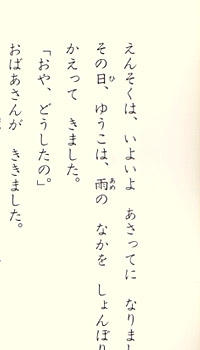 えんそくは、いよいよ あさってに なりまし
その日、ゆうこは、雨の なかを しょんぼり
かえって きました。
「おや、どうしたの。」
おばあさんが ききました。